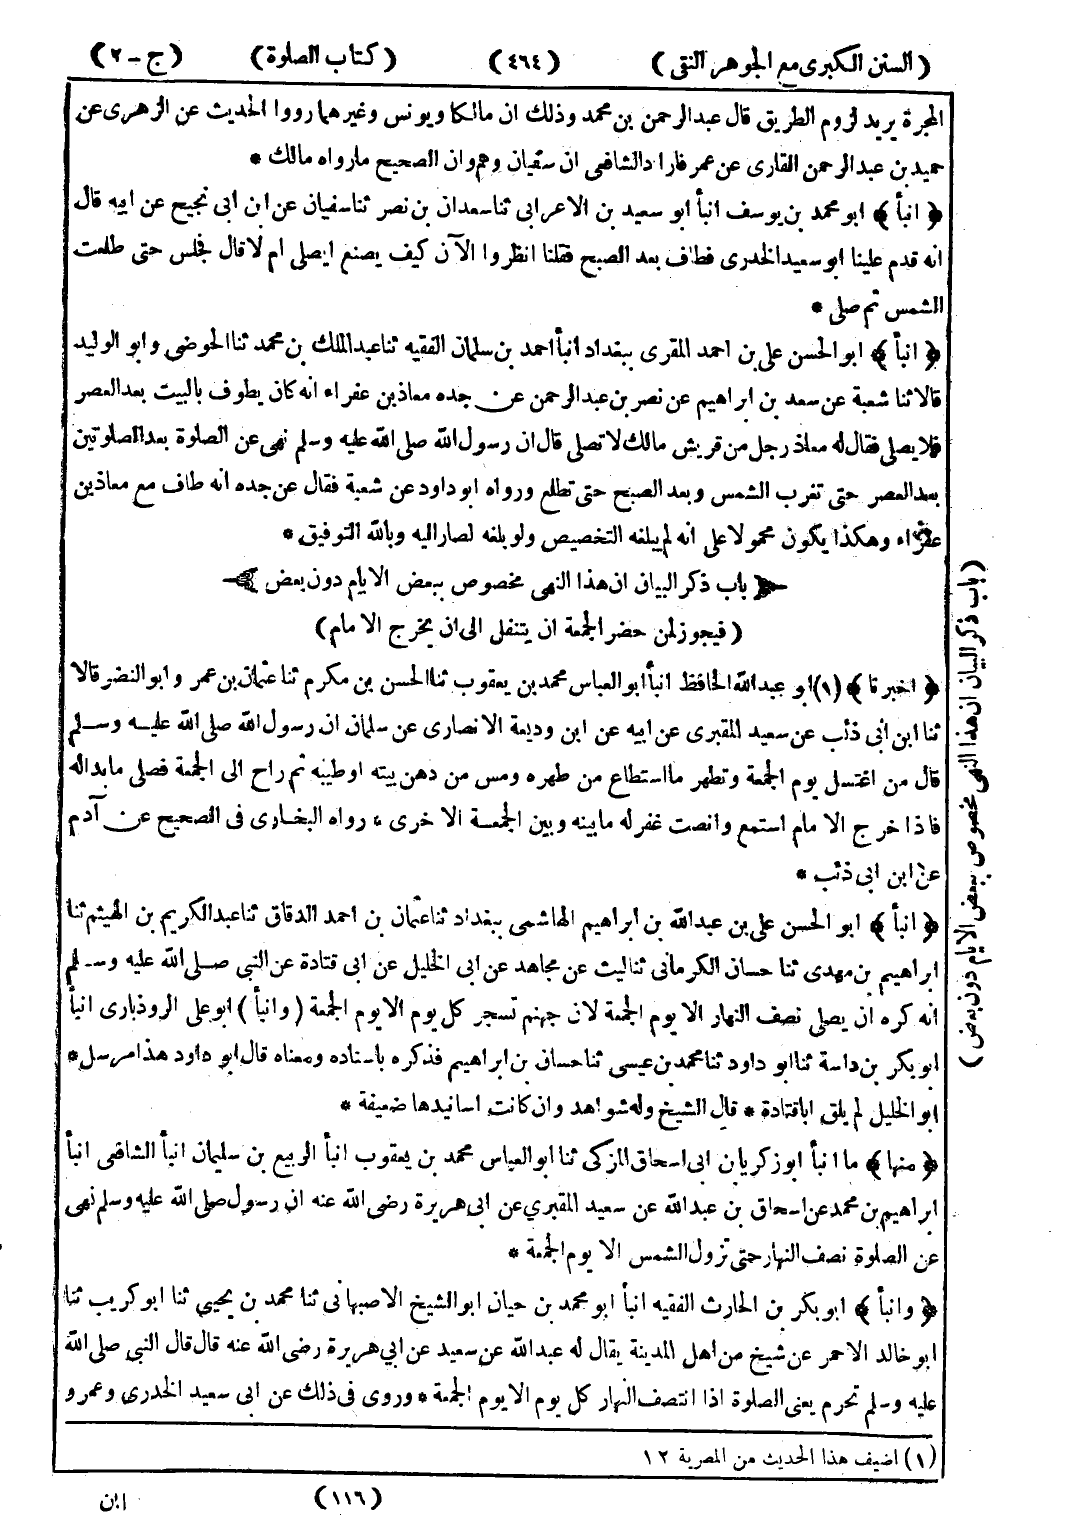 ( السنن الكبرى مع الجوهر النقى ) ( ٤٦٤ ) ( كتاب الصلوة ) ( ج - ٢ )
المجرة يريد لزوم الطريق قال عبدالرحمن بن محمد وذلك ان مالكا ويونس وغيرهما رووا الحديث عن الزهرى عن
حميد بن عبد الرحمن القارى عن عمر فاراد الشافعى ان سفيان وهم وان الصحيح مارواه مالك *
﴿ انبأ ﴾ ابو محمد بن يوسف انبأ ابو سعيد بن الاعرابى ثنا سعدان بن نصر ثنا سفيان عن ابن ابى نجيح عن ابيه قال
انه قدم علينا ابو سعيد الخدرى فطاف بعد الصبح فقلنا انظروا الآن كيف يصنع ايصلى ام لا قال فجلس حتى طلعت
الشمس ثم صلى *
﴿ انبأ ﴾ ابو الحسن على بن احمد المقرى ببغداد انبأ احمد بن سلمان الفقيه ثنا عبدالملك بن محمد ثنا الحوضى وابو الوليد
قالا ثنا شعبة عن سعد بن ابراهيم عن نصر بن عبدالرحمن عن جده معاذ بن عفراء انه كان يطوف بالبيت بعدالعصر
فلا يصلى فقال له معاذ رجل من قريش مالك لا تصلى قال ان رسول الله صلى الله عليه وسلم نهى عن الصلوة بعد الصلوتين
بعد العصر حتى تغرب الشمس وبعد الصبح حتى تطلع ورواه ابو داود عن شعبة فقال عن جده انه طاف مع معاذ بن
عفراء وهكذا يكون محمولا على انه لم يبلغه التخصيص ولو بلغه لصار اليه وبالله التوفيق *
﴿ باب ذكر البيان ان هذا النهى مخصوص ببعض الايام دون بعض ﴾
( فيجوز لمن حضر الجمعة ان يتنفل الى ان يخرج الامام )
﴿ اخبرنا ﴾ (١) ابو عبدالله الحافظ انبأ ابو العباس محمد بن يعقوب ثنا الحسن بن مكرم ثنا عثمان بن عمر وابو النضر قالا
ثنا ابن أبى ذئب عن سعيد المقبرى عن ابيه عن ابن وديعة الانصارى عن سلمان ان رسول الله صلى الله عليه وسلم
قال من اغتسل يوم الجمعة وتطهر ما استطاع من طهره ومس من دهن بيته اوطيبه ثم راح الى الجمعة فصلى ما بداله
فاذا خرج الامام استمع وانصت غفر له ما بينه وبين الجمعة الاخرى * رواه البخارى فى الصحيح عن آدم
عن ابن ابى ذئب *
﴿ انبأ ﴾ ابو الحسن على بن عبدالله بن ابراهيم الهاشمى ببغداد ثنا عثمان بن احمد الدقاق ثنا عبدالكريم بن الهيثم ثنا
ابراهيم بن مهدى ثنا حسان الكرمانى ثنا ليث عن مجاهد عن ابى الخليل عن ابى قتادة عن النبى صلى الله عليه وسلم
انه كره ان يصلى نصف النهار الا يوم الجمعة لان جهنم تسجر كل يوم الا يوم الجمعة ( وانبأ ) ابو على الروذبارى انبأ
ابو بكر بن داسة ثنا ابو داود ثنا محمد بن عيسى ثنا حسان بن ابراهيم فذكره باسناده ومعناه قال ابو داود هذا مرسل *
ابو الخليل لم يلق اباقتادة * قال الشيخ وله شواهد وان كانت اسانيدها ضعيفة *
﴿ منها ﴾ ما انبأ ابوزكريا بن ابى اسحاق المزكى ثنا ابو العباس محمد بن يعقوب انبأ الربيع بن سليمان انبأ الشافعى انبأ
ابراهيم بن محمد عن اسحاق بن عبدالله عن سعيد المقبري عن ابى هريرة رضى الله عنه ان رسول صلى الله عليه وسلم نهى
عن الصلوة نصف النهار حتى تزول الشمس الا يوم الجمعة *
﴿ وانبأ ﴾ ابوبكر بن الحارث الفقيه انبأ ابو محمد بن حيان ابو الشيخ الاصبهانى ثنا محمد بن يحيى ثنا ابو كريب ثنا
ابو خالد الاحمر عن شيخ من اهل المدينة يقال له عبدالله عن سعيد عن ابي هريرة رضى الله عنه قال قال النبى صلى الله
عليه وسلم تحرم يعنى الصلوة اذا انتصف النهار كل يوم الا يوم الجمعة * وروى فى ذلك عن ابى سعيد الخدرى وعمرو
(١) اضيف هذا الحديث من المصرية ١٢
(١١٦) ابن
( باب ذكر البيان ان هذا النهى مخصوص ببعض الايام دون بعض )